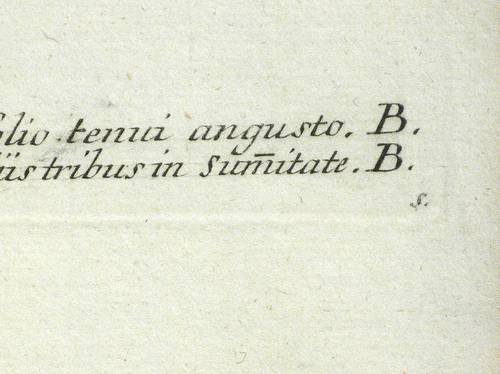 olio tenui angusto. B.
iis tribus in Sum̄itate. B.
s.